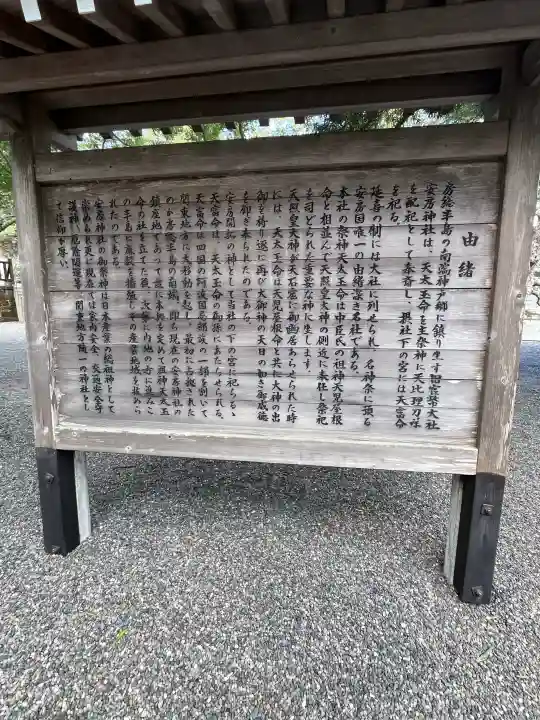 由緒
房総半島の南端神戸郷に鎮り坐す旧官幣大社
安房神社は、天太玉命を主祭神に天比理刀咩命
を配祀として奉斎し、摂社下の宮には天富命
を祀る。
延喜の制には大社に列せられ、名神祭に預る
安房国唯一の由緒深き名社である。
本社の祭神天太玉命は中臣氏の祖神天児屋根
命と相並んで天照皇大神の側近に奉仕し祭祀
を司どられた重要な神に坐します。
天照皇大神が天石窟に御幽居あらせられた時
には、天太玉命は天児屋根命と共に大神の出
御を祷り、遂に再び大御神の天日の如き御威徳
を仰ぎ奉られたのである。
安房開拓の神として当社の下の宮に祀らるゝ
天富命は、天太玉命の御孫にあたらせられる。
天富命は四国の阿波国忌部族の一部を割いて
関東地方に大移動を起し、最初に占拠された
のが房総半島の南端、即ち現在の安房神社の
鎮座地であって、茲に本拠を定めて祖神天太玉
命の社を立てた後、次第に内地の方に進みこ
の半島に忌部を播殖し、率の産業地域を拡めら
れたのである。
安房神社の御祭神は日本産業の総祖神として
崇められ更に現在では家内安全、交通安全守
護神、厄除開運等、関東地方随一の神社とし
て信仰が厚い。